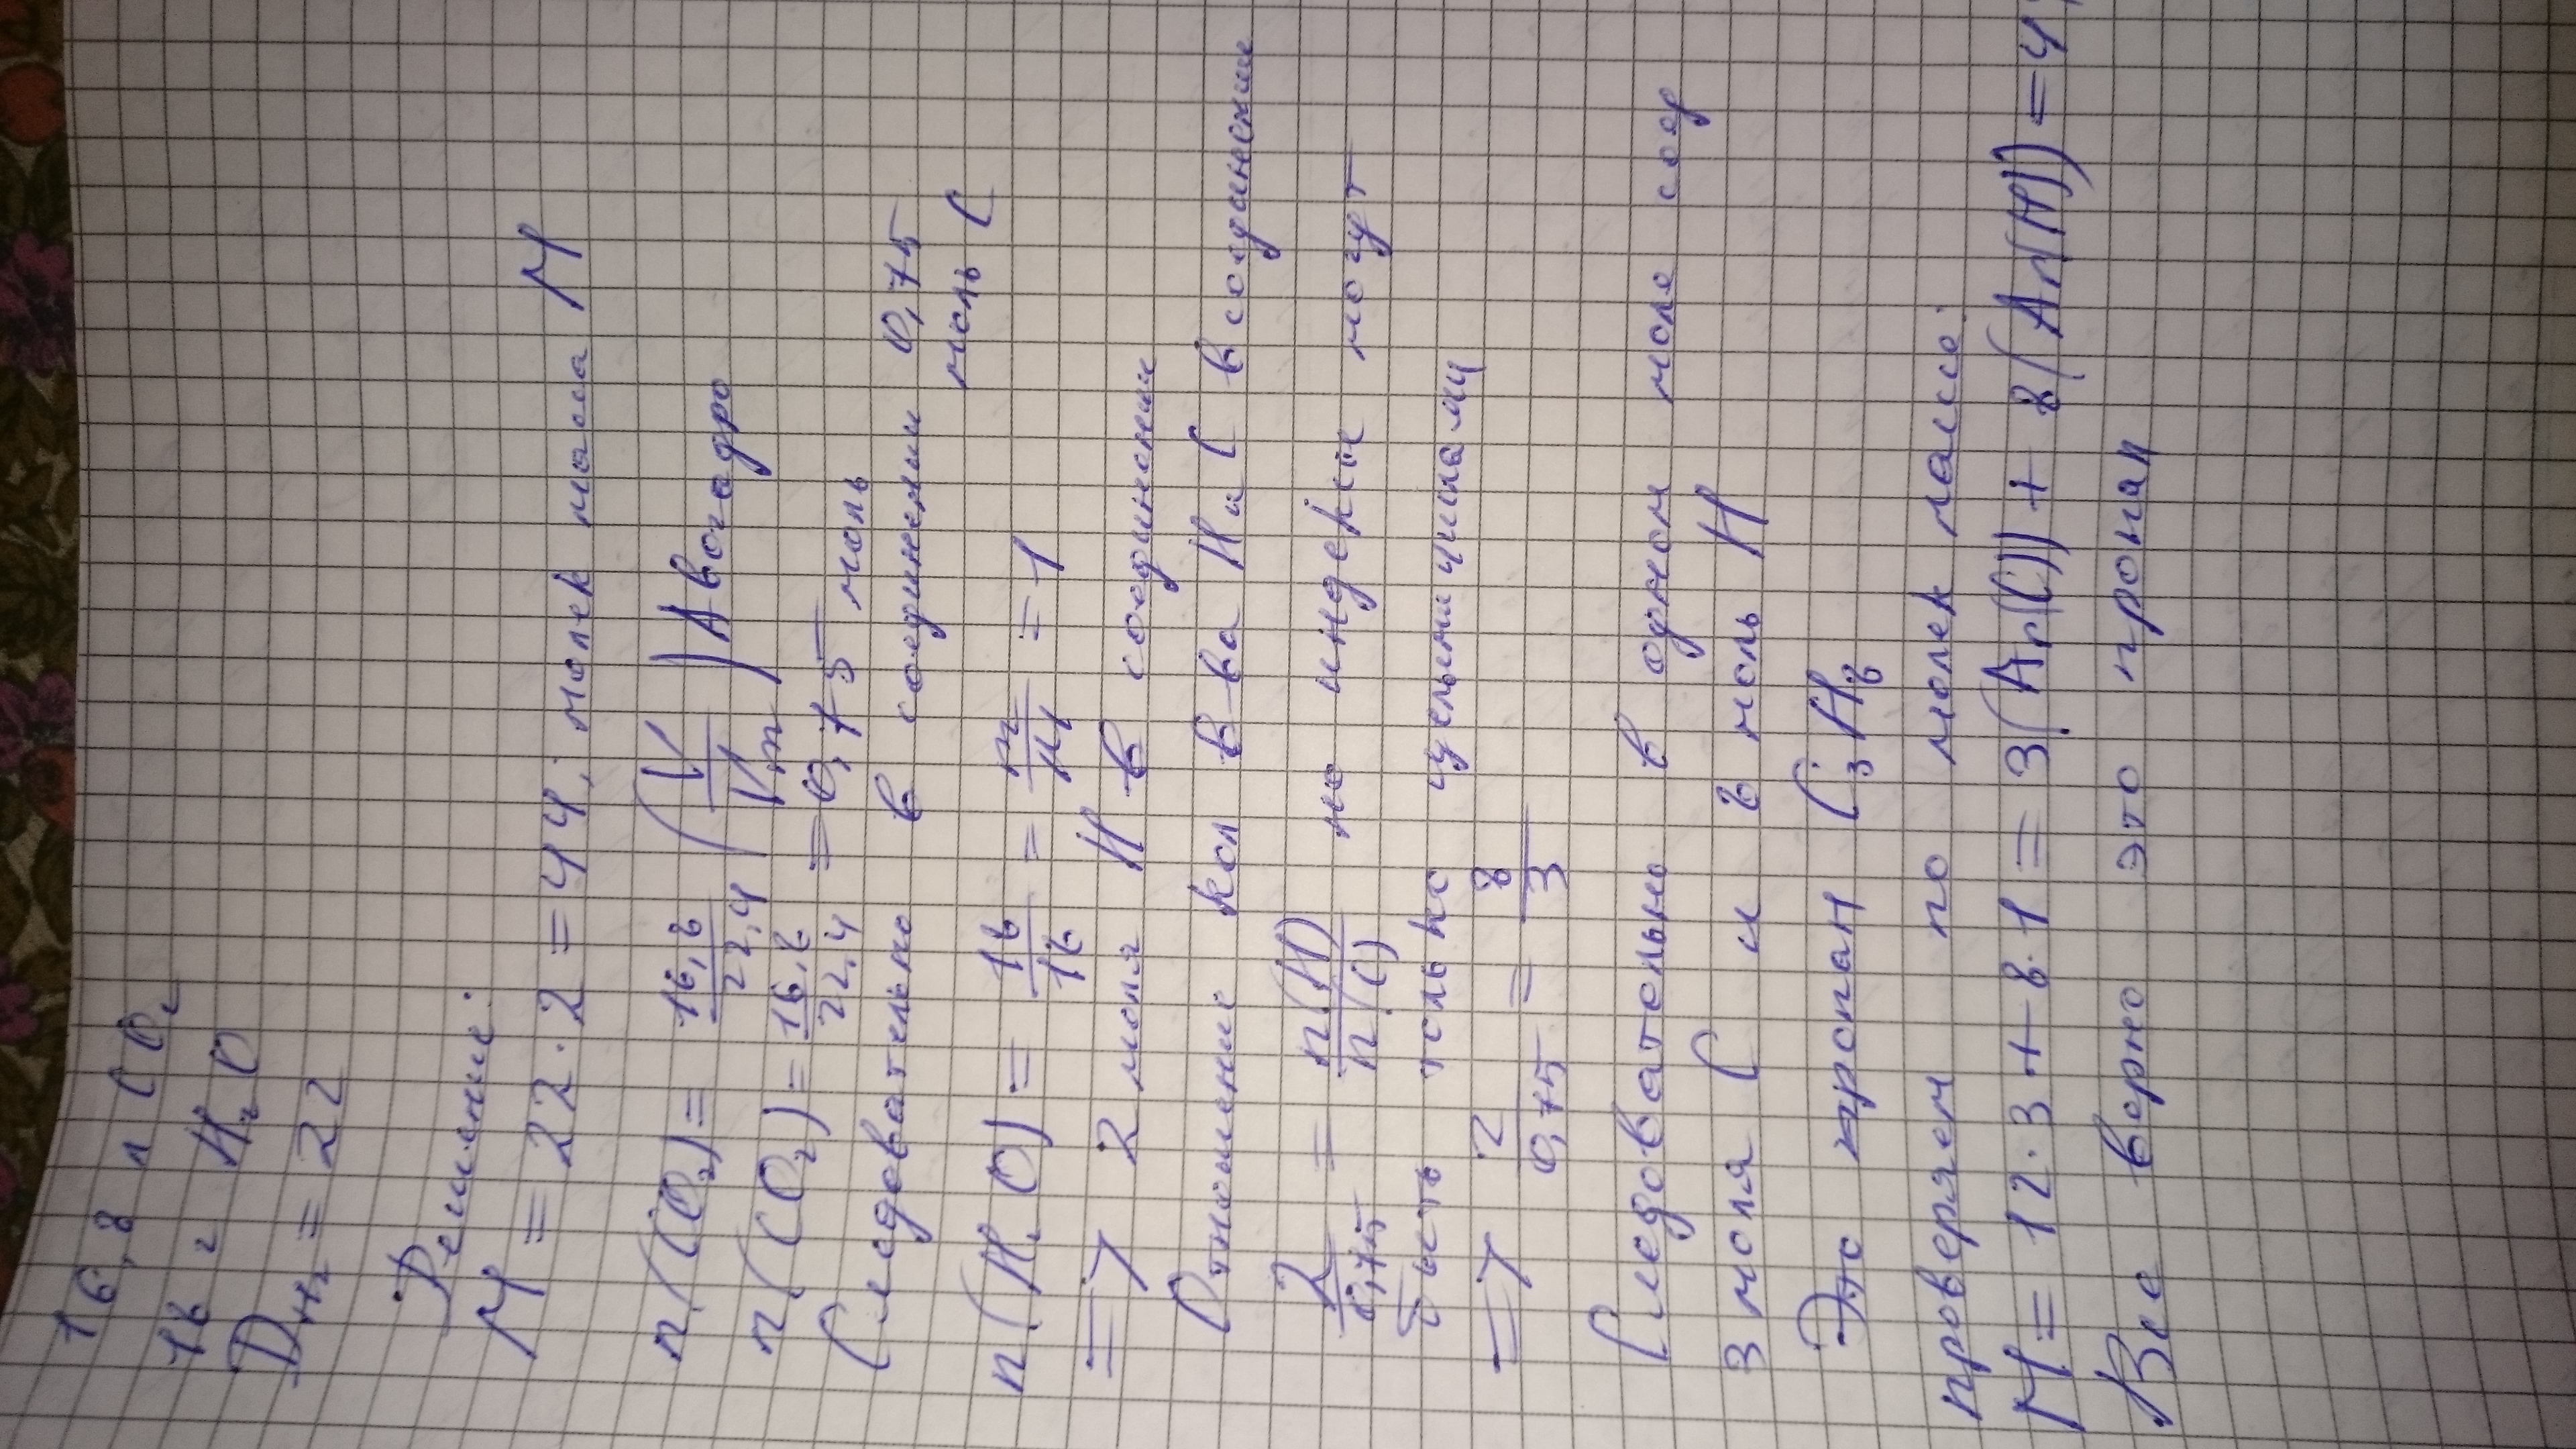 16,8 л CO₂
18 г H₂O
D H₂ = 22
Решение:
M = 22 · 2 = 44; молек масса M
n(CO₂) = 16,8/22,4 (V/Vm) Авогадро
n(CO₂) = 16,8/22,4 = 0,75 моль
Следовательно в соединении 0,75
моль C
n(H₂O) = 18/18 = m/M = 1
=> 2 моля H в соединении
Отношение кол в ва H и C в соединении
2/0,75 = n(H)/n(C) но индексы могут
быть только целыми числами
=> 2/0,75 = 8/3
Следовательно в одном моле соед
3 моля C и 8 моль H
Это пропан C₃H₈
проверяем по молек массе:
M = 12·3 + 8·1 = 3(Ar(C)) + 8(Ar(H)) = 44
Все верно это пропан